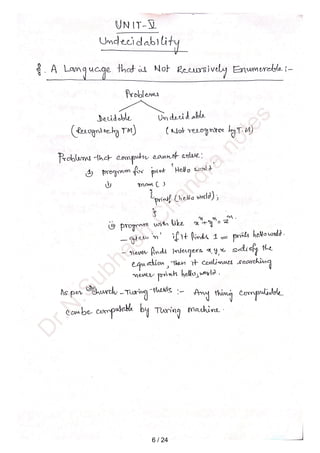 UNIT-V
Undecidability
A Language that is Not Recursively Enumerable :-
Problems
Decidable Undecidable
(Recognize by TM) (Not recognize by T.M)
Problems that computer cannot solve:
program for print "Hello world"
main ( )
{
printf (hello world);
}
program with like xⁿ+yⁿ = zⁿ.
- given 'n' if it finds prints hello world.
never finds Intergers x y z satisfy the
equation, Then it continues searching
never prints hello, world.
As per Church-Turing-thesis :- Any thing computable
can be computable by Turing machine.
6 / 24